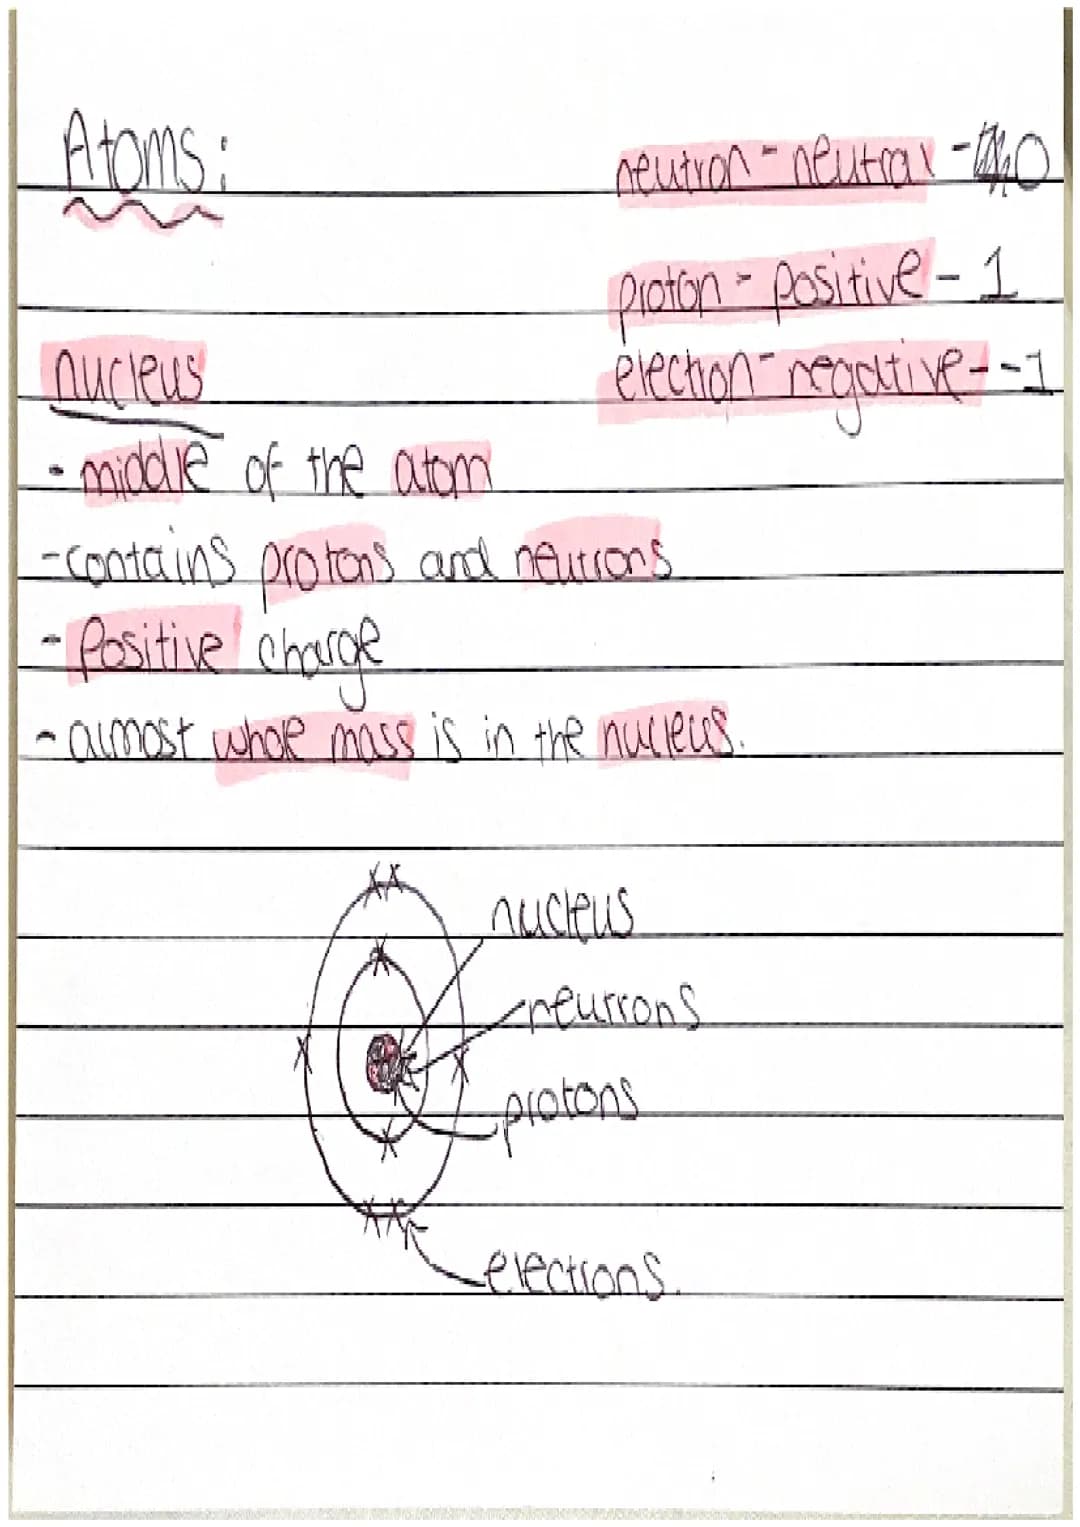 Atoms:
neutron - neutral - 0
proton - positive - 1
electron - negative - -1
nucleus
• middle of the atom
- contains protons and neutrons
- Positive charge
- almost whole mass is in the nucleus.
nucleus
neutrons
protons
electrons.